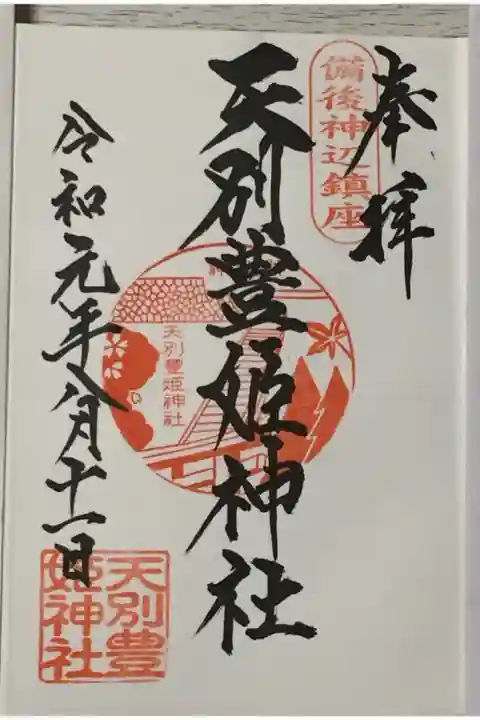 奉拝
備後神辺鎮座
天別豊姫神社
天別豊姫神社
令和元年八月十一日
天別豊
姫神社